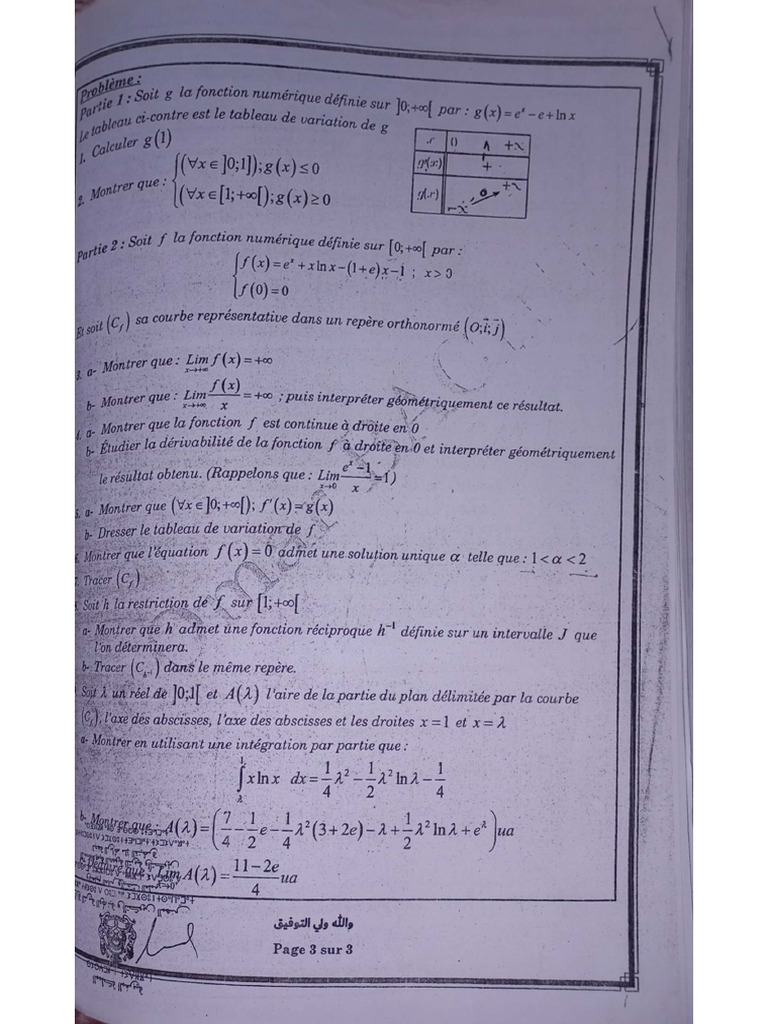 Problème :
Partie 1 : Soit g la fonction numérique définie sur ]0;+∞[ par : g(x) = e^x − e + ln x
Le tableau ci-contre est le tableau de variation de g
1. Calculer g(1)
x 0 1 +∞
g'(x) +
g(x) −∞ 0 +∞
2. Montrer que : { (∀x ∈ ]0;1]); g(x) ≤ 0
(∀x ∈ [1;+∞[); g(x) ≥ 0
Partie 2 : Soit f la fonction numérique définie sur [0;+∞[ par :
{ f(x) = e^x + x ln x − (1+e)x − 1 ; x > 0
f(0) = 0
Et soit (C_f) sa courbe représentative dans un repère orthonormé (O;i⃗;j⃗)
3. a- Montrer que : Lim x→+∞ f(x) = +∞
b- Montrer que : Lim x→+∞ f(x)/x = +∞ ; puis interpréter géométriquement ce résultat.
4. a- Montrer que la fonction f est continue à droite en 0
b- Étudier la dérivabilité de la fonction f à droite en 0 et interpréter géométriquement
le résultat obtenu. (Rappelons que : Lim x→0 (e^x − 1)/x = 1)
5. a- Montrer que (∀x ∈ ]0;+∞[); f'(x) = g(x)
b- Dresser le tableau de variation de f
6. Montrer que l'équation f(x) = 0 admet une solution unique α telle que : 1 < α < 2
7. Tracer (C_f)
8. Soit h la restriction de f sur [1;+∞[
a- Montrer que h admet une fonction réciproque h^-1 définie sur un intervalle J que
l'on déterminera.
b- Tracer (C_h^-1) dans le même repère.
Soit λ un réel de ]0;1[ et A(λ) l'aire de la partie du plan délimitée par la courbe
(C_f), l'axe des abscisses, l'axe des abscisses et les droites x = 1 et x = λ
a- Montrer en utilisant une intégration par partie que :
∫_λ^1 x ln x dx = 1/4 λ² − 1/2 λ² ln λ − 1/4
b- Montrer que : A(λ) = (7/4 − 1/2 e − 1/4 λ²(3+2e) − λ + 1/2 λ² ln λ + e^λ) ua
que : Lim A(λ) = (11−2e)/4 ua
والله ولي التوفيق
Page 3 sur 3